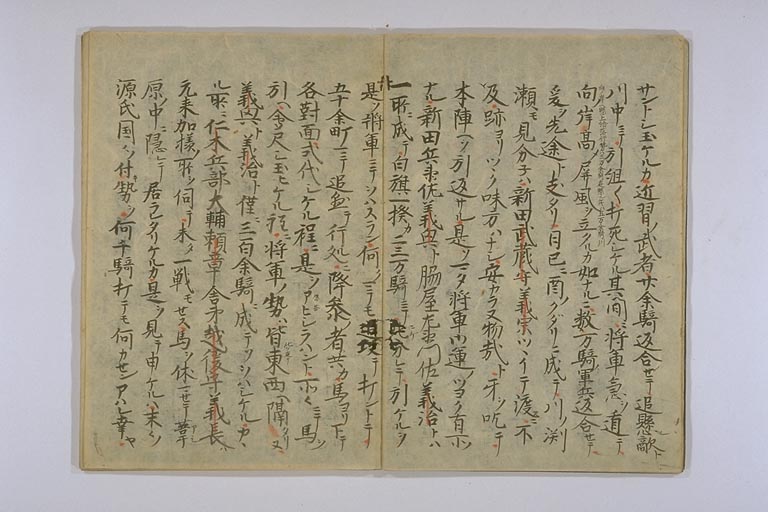 サントシ玉ケルカ近習ノ武者廿余騎返合セテ追懸敵ト
川中ニテ引組〱打死シケル其間ニ将軍急ヲ道テ
向岸高ノ屏風ヲ立タルカ如ナルニ数万騎軍兵返合セテ
爰ヲ先途ト支タリ日已ニ酉ノクダリニ成テ川ノ渕
瀬モ見分子ハ新田武蔵守義宗ツヽイテ渡ニ不
及跡ヨリツヽク味方ハナシ安カラヌ物哉ト牙ヲ吃テ
本陣ヘソ引返サル是ソ又将軍ノ運ノツヨク有ル所
ナル新田兵衛佐義興ト脇屋左衛門佐義治トハ
一所ニ成テ白旗一揆カ二三万騎ニテ 分レテ引ケルヲ
是ソ将軍ニテソハスラン何クニテモ追攻テ打ントテ
五十余町ニテ追立テ行処ニ降参ノ者共カ馬ヨリ下テ
各対面式代シケル程ニ是ソアヒシラハント所々ニテ馬
引ヘ会尺シ玉ヒケル程ニ将軍ノ勢ハ皆東西ヘ隔リヌ
義興ト義治ト僅ニ三百余騎ニ成テソハシケルカヽ
ル所ニ仁木兵部大輔頼章舎弟越後守義長ハ
元来加様ノ所ヲ伺テ未一戦モセス馬ヲ休セテ葦
原ノ中ニ隠レテ居ラタリケルカ是ヲ見テ申ケルハ末々ノ
源氏国々ノ付勢ヲ何千騎打テモ何カセンアハレ幸ヤ